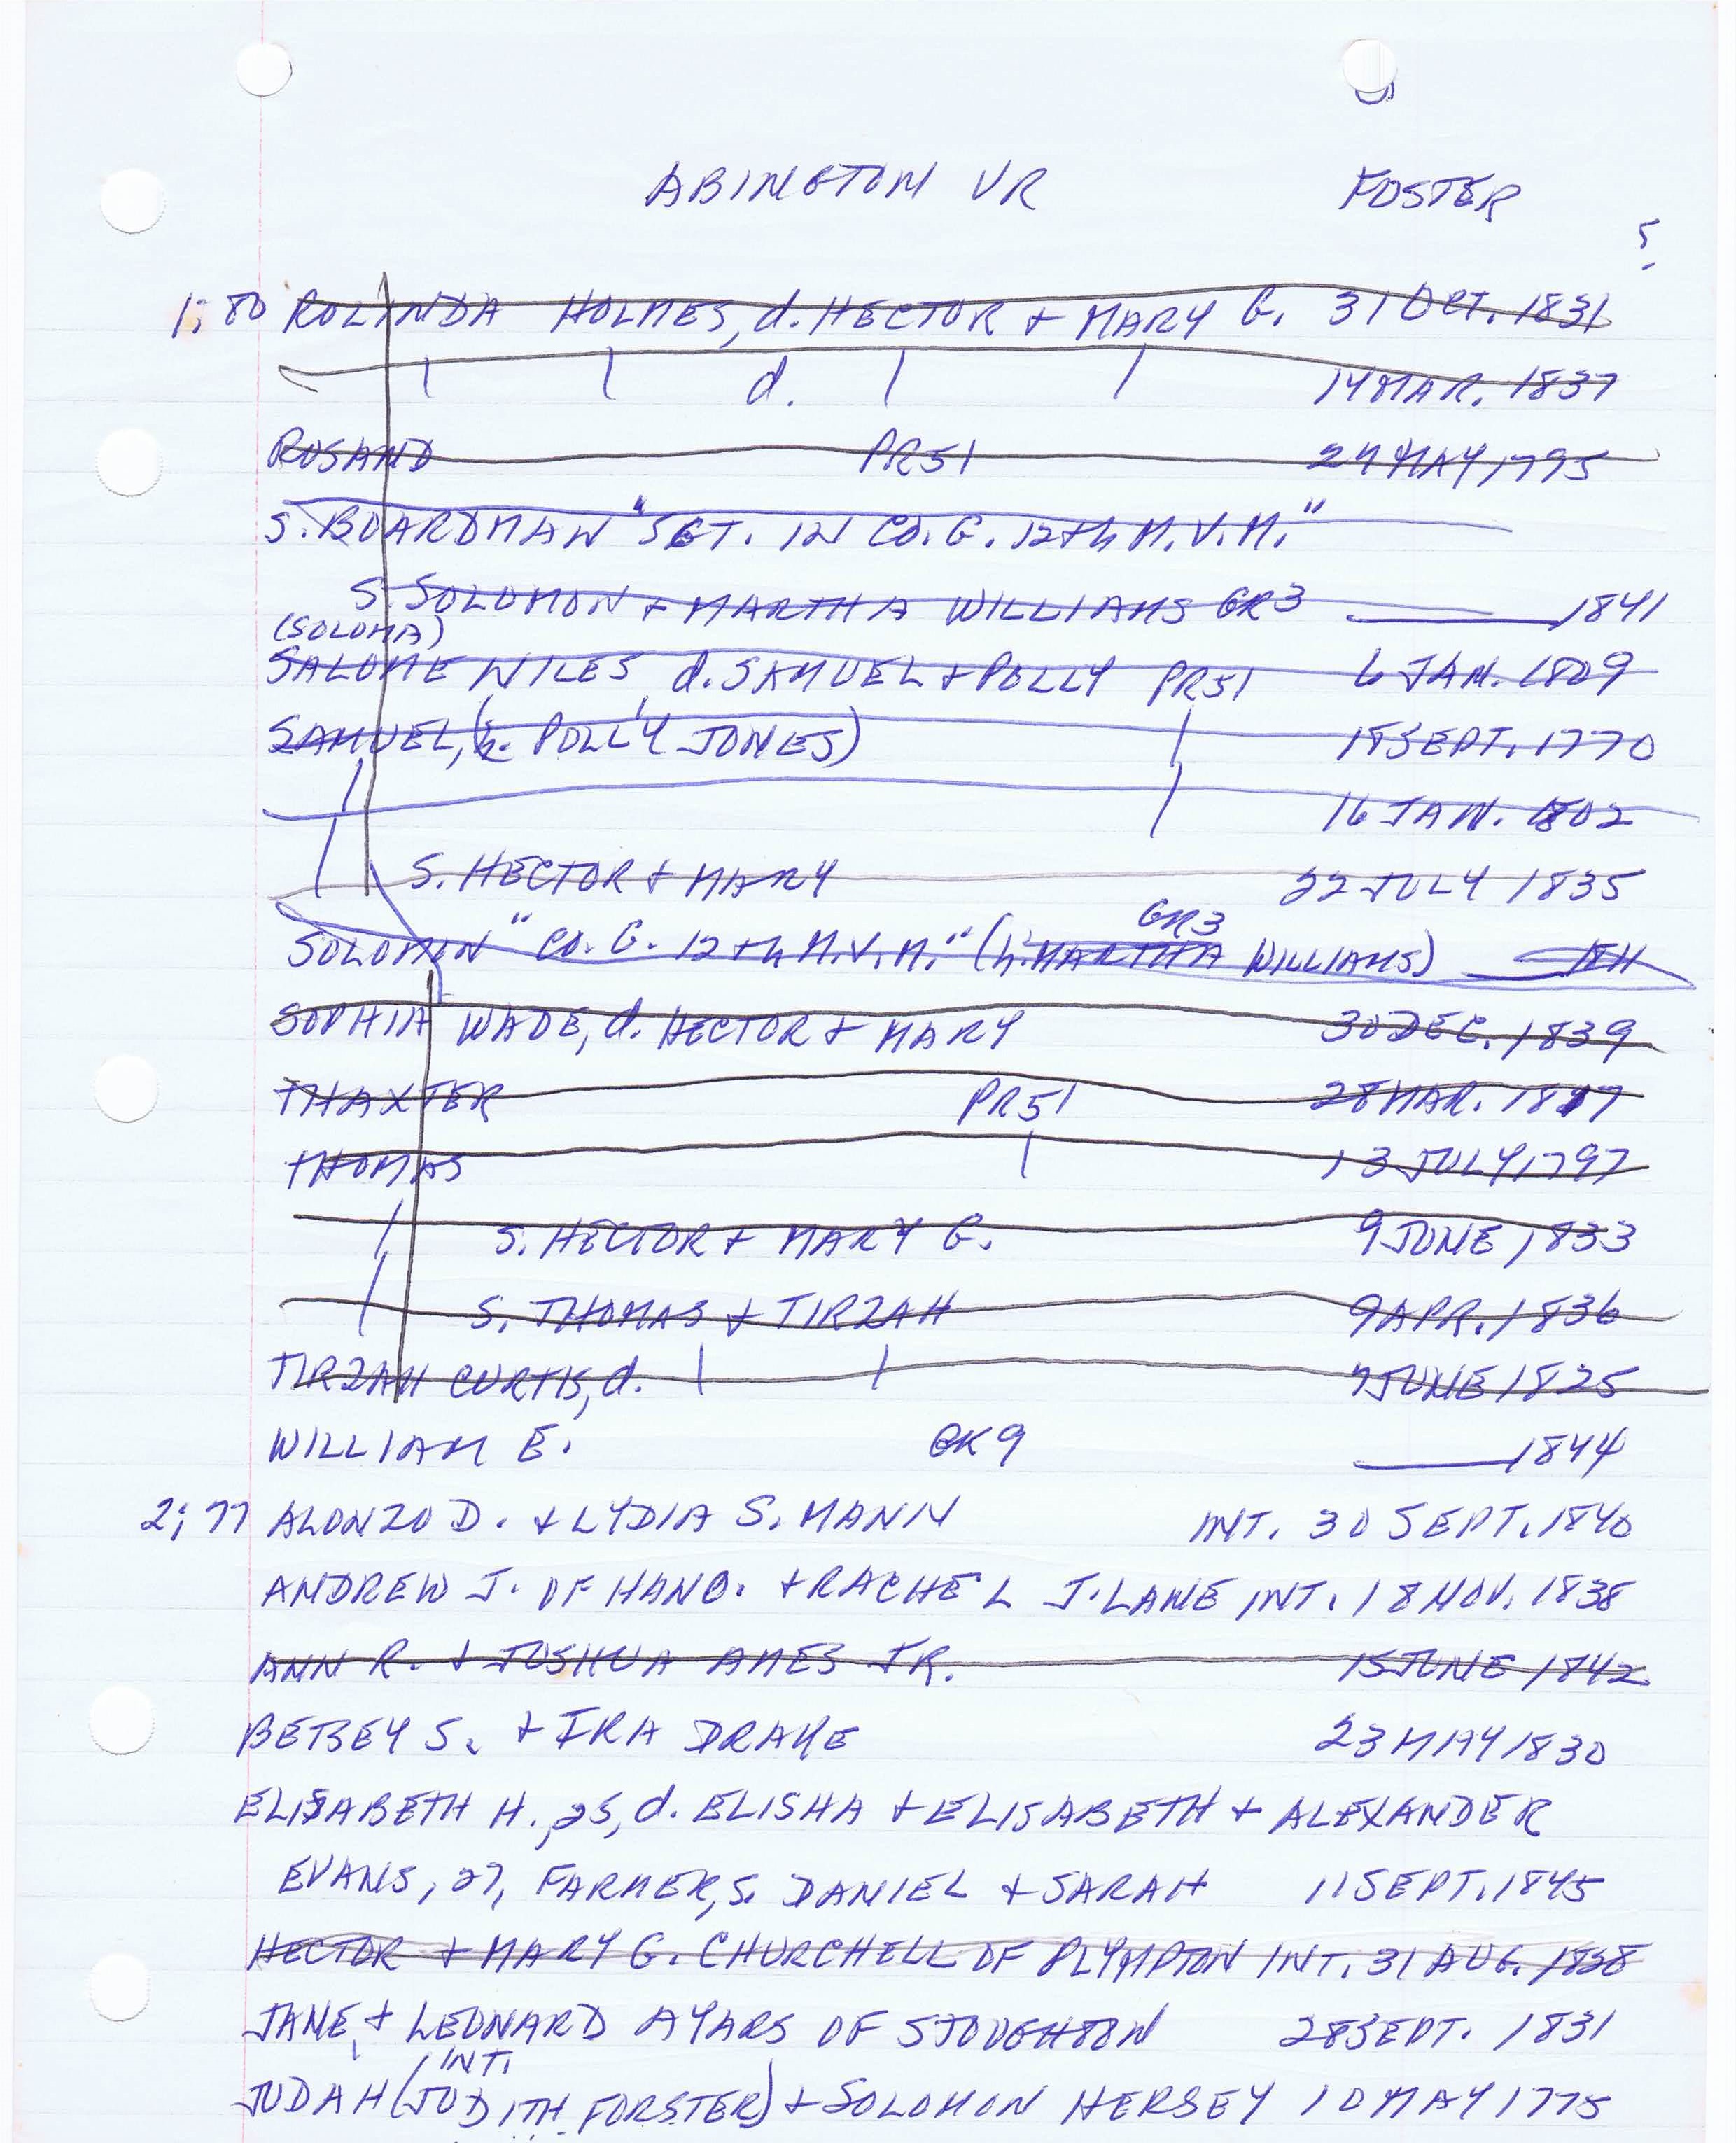 ABINGTON VR FOSTER
5
1;80 ROLINDA HOLMES, d. HECTOR + MARY G. 31 OCT. 1831
| | d. | | 14 MAR. 1837
ROSAND PR51 24 MAY 1795
S. BOARDMAN "SGT. IN CO. G. 12th M.V.M."
S. SOLOMON + MARTHA WILLIAMS GR3 —— 1841
(SOLOMA)
SALOME WILES, d. SAMUEL + POLLY PR51 6 JAN. 1809
SAMUEL, (h. POLLY JONES) | 18 SEPT. 1770
| | 16 JAN. 1802
| S. HECTOR + MARY 22 JULY 1835
GR3
SOLOMON "CO. G. 12th M.V.M." (h. MARTHA WILLIAMS) ——
SOPHIA WADE, d. HECTOR + MARY 30 DEC. 1839
THAXTER PR51 28 MAR. 1807
THOMAS | 13 JULY 1797
| S. HECTOR + MARY G. 9 JUNE 1833
| S. THOMAS + TIRZAH 9 APR. 1836
TIRZAH CURTIS, d. | | 7 JUNE 1825
WILLIAM E. GR9 —— 1844
2;77 ALONZO D. + LYDIA S. MANN INT. 30 SEPT. 1840
ANDREW J. OF HANO. + RACHEL J. LANE INT. 18 NOV. 1838
ANN R. + JOSHUA AMES JR. 15 JUNE 1842
BETSEY S. + IRA DRAKE 23 MAY 1830
ELISABETH H., 25, d. ELISHA + ELISABETH + ALEXANDER
EVANS, 27, FARMER, S. DANIEL + SARAH 11 SEPT. 1845
HECTOR + MARY G. CHURCHELL OF PLYMPTON INT. 31 AUG. 1838
JANE, + LEONARD AYARS OF STOUGHTON 28 SEPT. 1831
INT.
JUDAH (JUDITH FORSTER) + SOLOMON HERSEY 10 MAY 1775